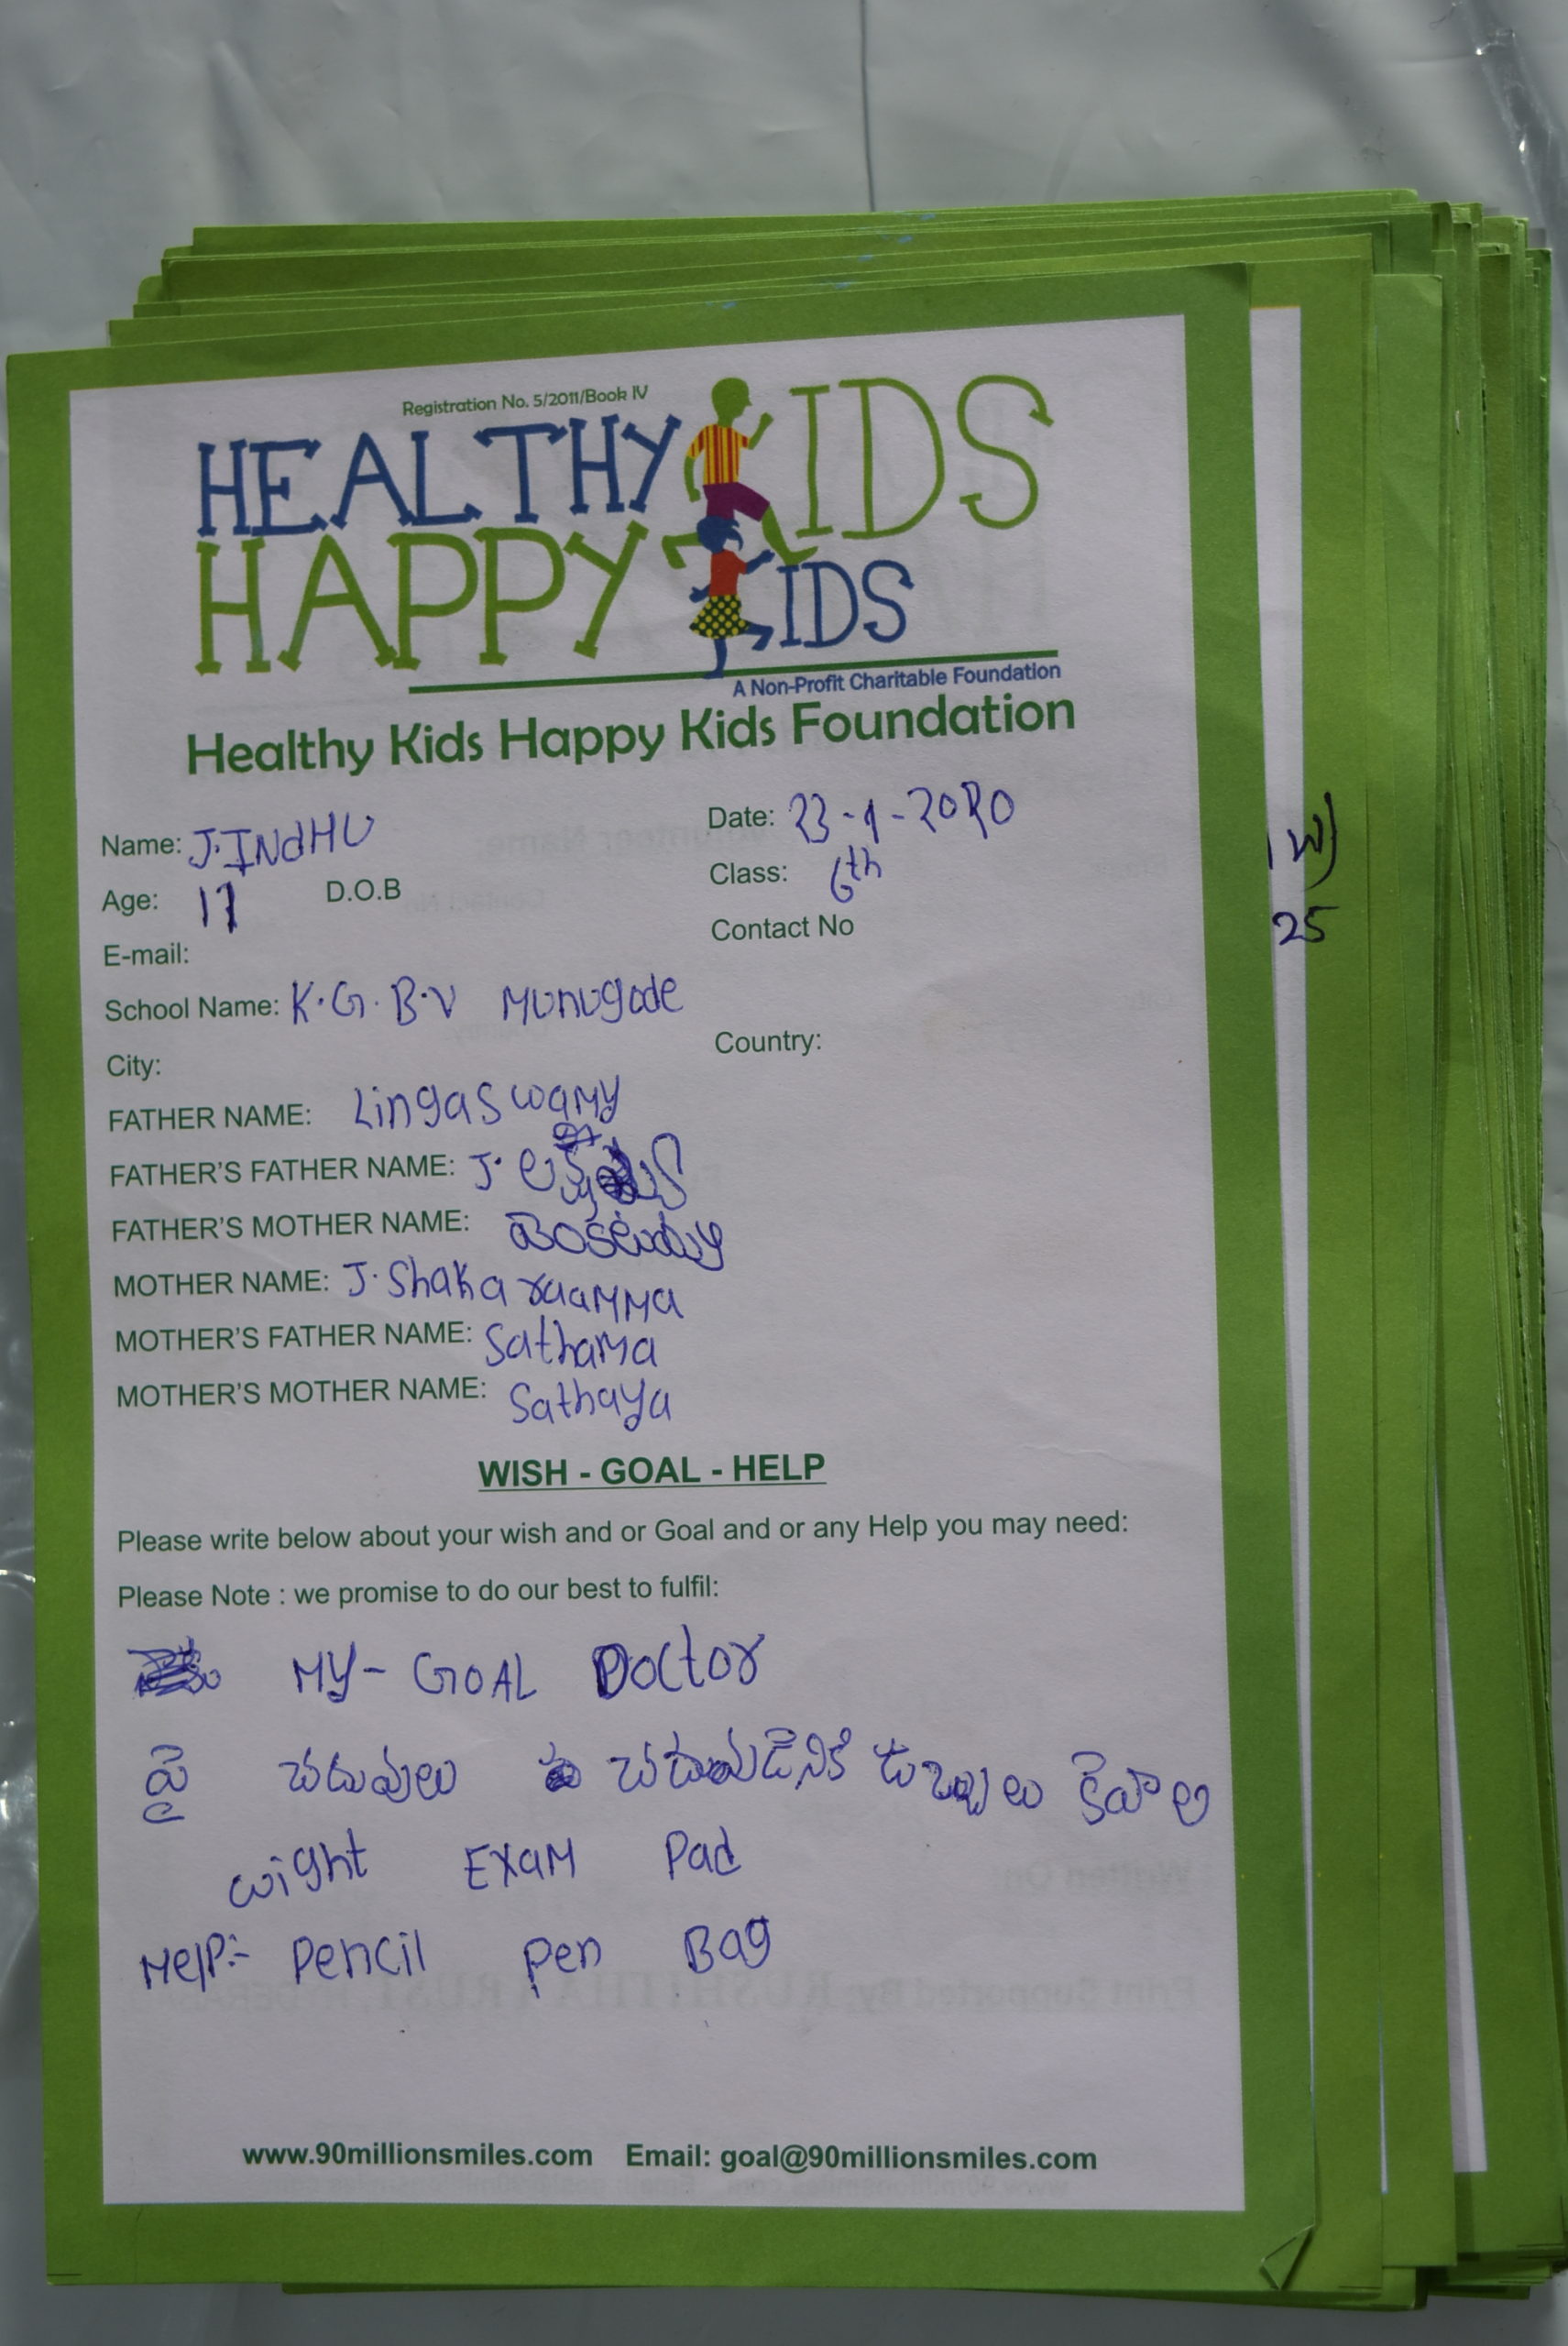 Registration No. 5/2011/Book IV
HEALTHY KIDS
HAPPY KIDS
A Non-Profit Charitable Foundation
Healthy Kids Happy Kids Foundation
Name: J.INdHU Date: 23-1-2020
Age: 11 D.O.B Class: 6th
E-mail: Contact No
School Name: K.G.B.V Munugode
City: Country:
FATHER NAME: Lingaswamy
FATHER'S FATHER NAME: J.
FATHER'S MOTHER NAME:
MOTHER NAME: J. Shakaraamma
MOTHER'S FATHER NAME: Sathama
MOTHER'S MOTHER NAME: Sathaya
WISH - GOAL - HELP
Please write below about your wish and or Goal and or any Help you may need:
Please Note : we promise to do our best to fulfil:
MY- GOAL Doctor
పై చదువులు
wight Exam Pad
Help:- Pencil pen Bag
www.90millionsmiles.com Email: goal@90millionsmiles.com
25